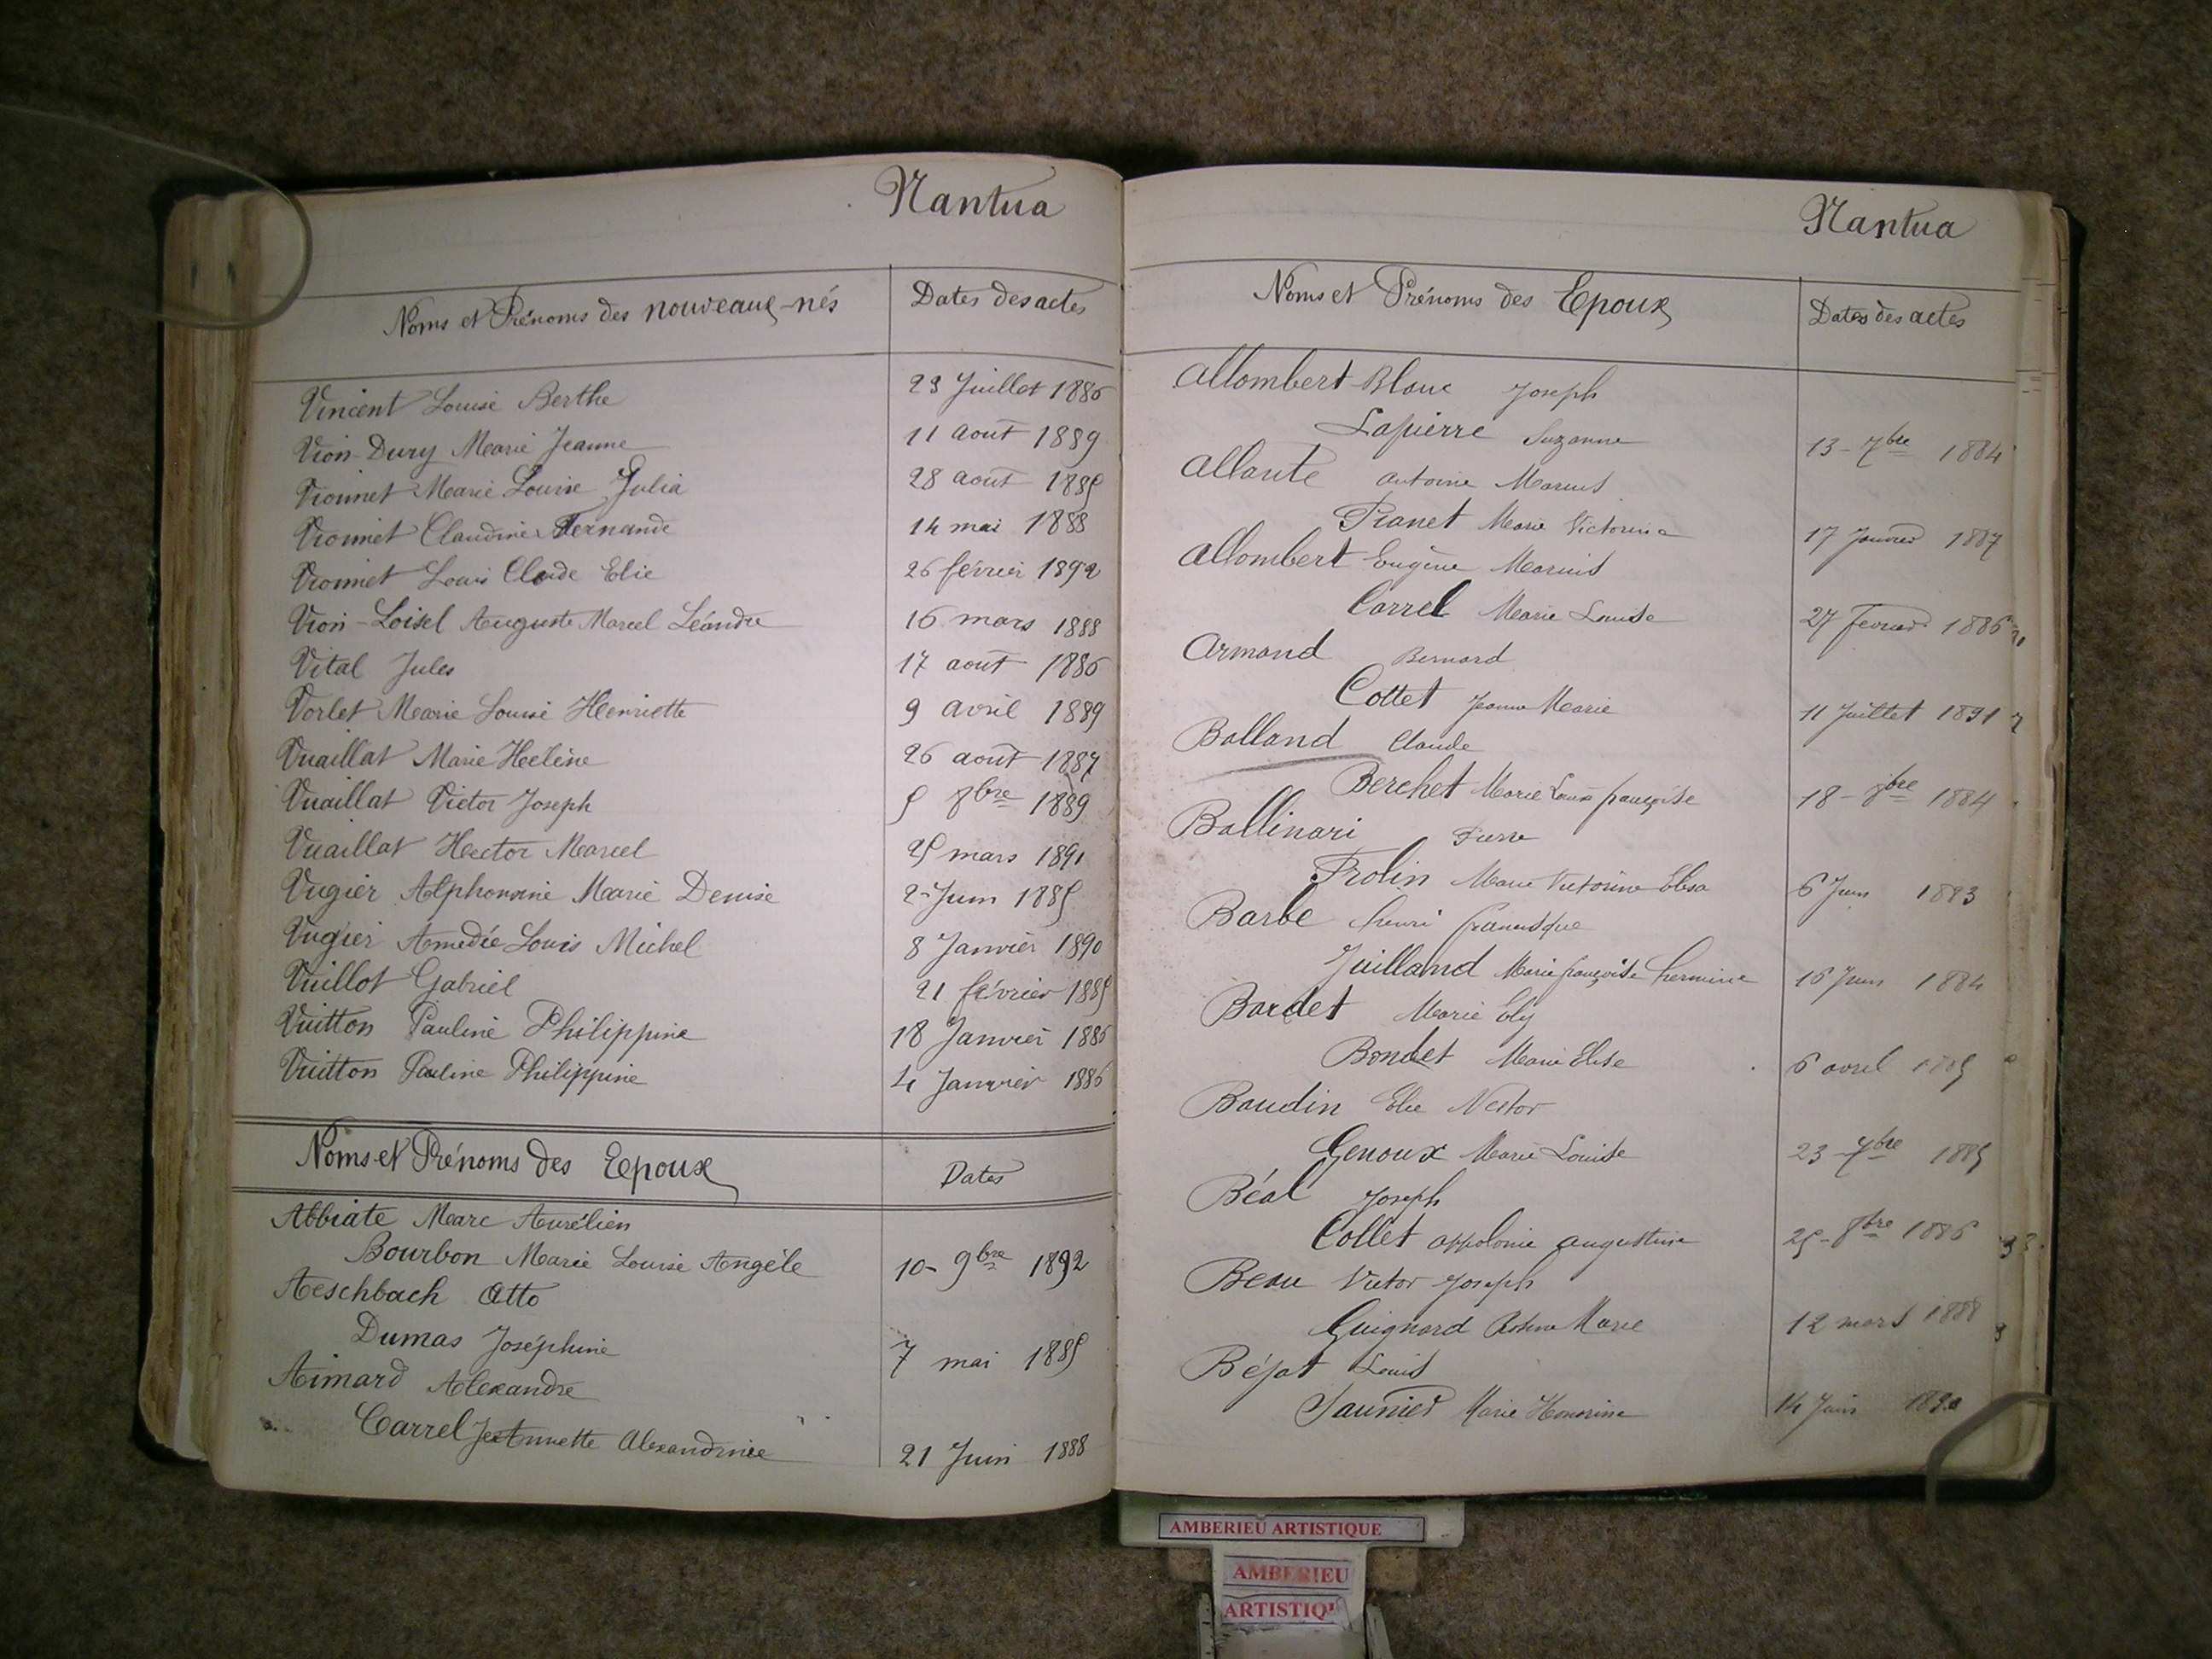 Nantua
Noms et Prénoms des nouveaux-nés Dates des actes
Vincent Louise Berthe 23 Juillet 1886
Vion-Dury Marie Jeanne 11 août 1889
Vionnet Marie Louise Julia 28 août 1885
Vionnet Claudine Fernande 14 mai 1888
Vionnet Louis Claude Elie 26 février 1892
Vion-Loisel Auguste Marcel Léandre 16 mars 1888
Vital Jules 17 août 1886
Vorlet Marie Louise Henriette 9 avril 1889
Vuaillat Marie Hélène 26 août 1887
Vuaillat Victor Joseph 5 8bre 1889
Vuaillat Hector Marcel 25 mars 1891
Vugier Alphonsine Marie Denise 2 Juin 1885
Vugier Amedée Louis Michel 8 Janvier 1890
Vuillot Gabriel 21 février 1885
Vuitton Pauline Philippine 18 Janvier 1886
Vuitton Pauline Philippine 4 Janvier 1886
Noms et Prénoms des Epoux Dates
Abbiate Marc Aurélien
Bourbon Marie Louise Angèle 10-9bre 1892
Aeschbach Otto
Dumas Joséphine 7 mai 1885
Aimard Alexandre
Carrel Alexandrine 21 Juin 1888
Nantua
Noms et Prénoms des Epoux Dates des actes
Allombert-Blanc Joseph
Lapierre Suzanne 13-7bre 1884
Allante antoine Marius
Pianet Marie Victorine 17 Janvier 1887
Allombert Eugène Marius
Carrel Marie Louise 27 fevrier 1886
Armand Bernard
Cottet Jeanne Marie 11 Juillet 1891
Balland Claude
Berchet Marie Louise françoise 18-8bre 1884
Ballinari Pierre
Frolin Marie Victorine Elisa 6 Juin 1893
Barbe henri francisque
Juilland Marie françoise hermine 16 Juin 1884
Bardet Marie Ely
Bondet Marie Elise 6 avril 1885
Baudin Elie Nestor
Genoux Marie Louise 23-7bre 1885
Béal Joseph
Collet appolonie augustine 25-8bre 1886
Beau Victor Joseph
Guignard Marie 12 mars 1888
Béjat Louis
Saunier Marie Honorine 14 Juin
AMBERIEU ARTISTIQUE
AMBERIEU
ARTISTIQU